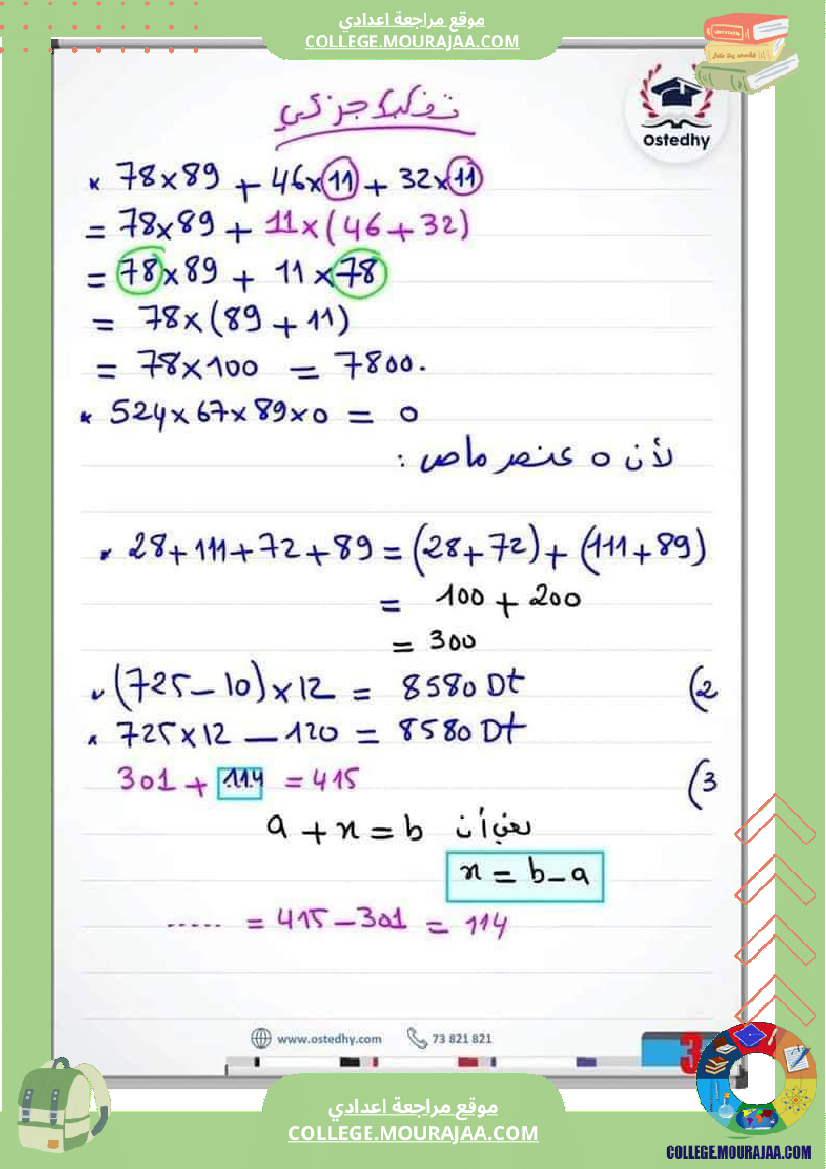 موقع مراجعة اعدادي
COLLEGE.MOURAJAA.COM
ostedhy
تفكيك جزئي
* 78x89 + 46x11 + 32x11
= 78x89 + 11x(46+32)
= 78x89 + 11x78
= 78x(89+11)
= 78x100 = 7800.
* 524x67x89x0 = 0
لأن 0 عنصر ماص :
* 28+111+72+89 = (28+72)+(111+89)
= 100+200
= 300
* (725-10)x12 = 8580 Dt (2
* 725x12-120 = 8580 Dt
301 + 114 = 415 (3
a+x=b يعني أن
x=b-a
..... = 415-301 = 114
www.ostedhy.com 73 821 821
3
موقع مراجعة اعدادي
COLLEGE.MOURAJAA.COM
COLLEGE.MOURAJAA.COM